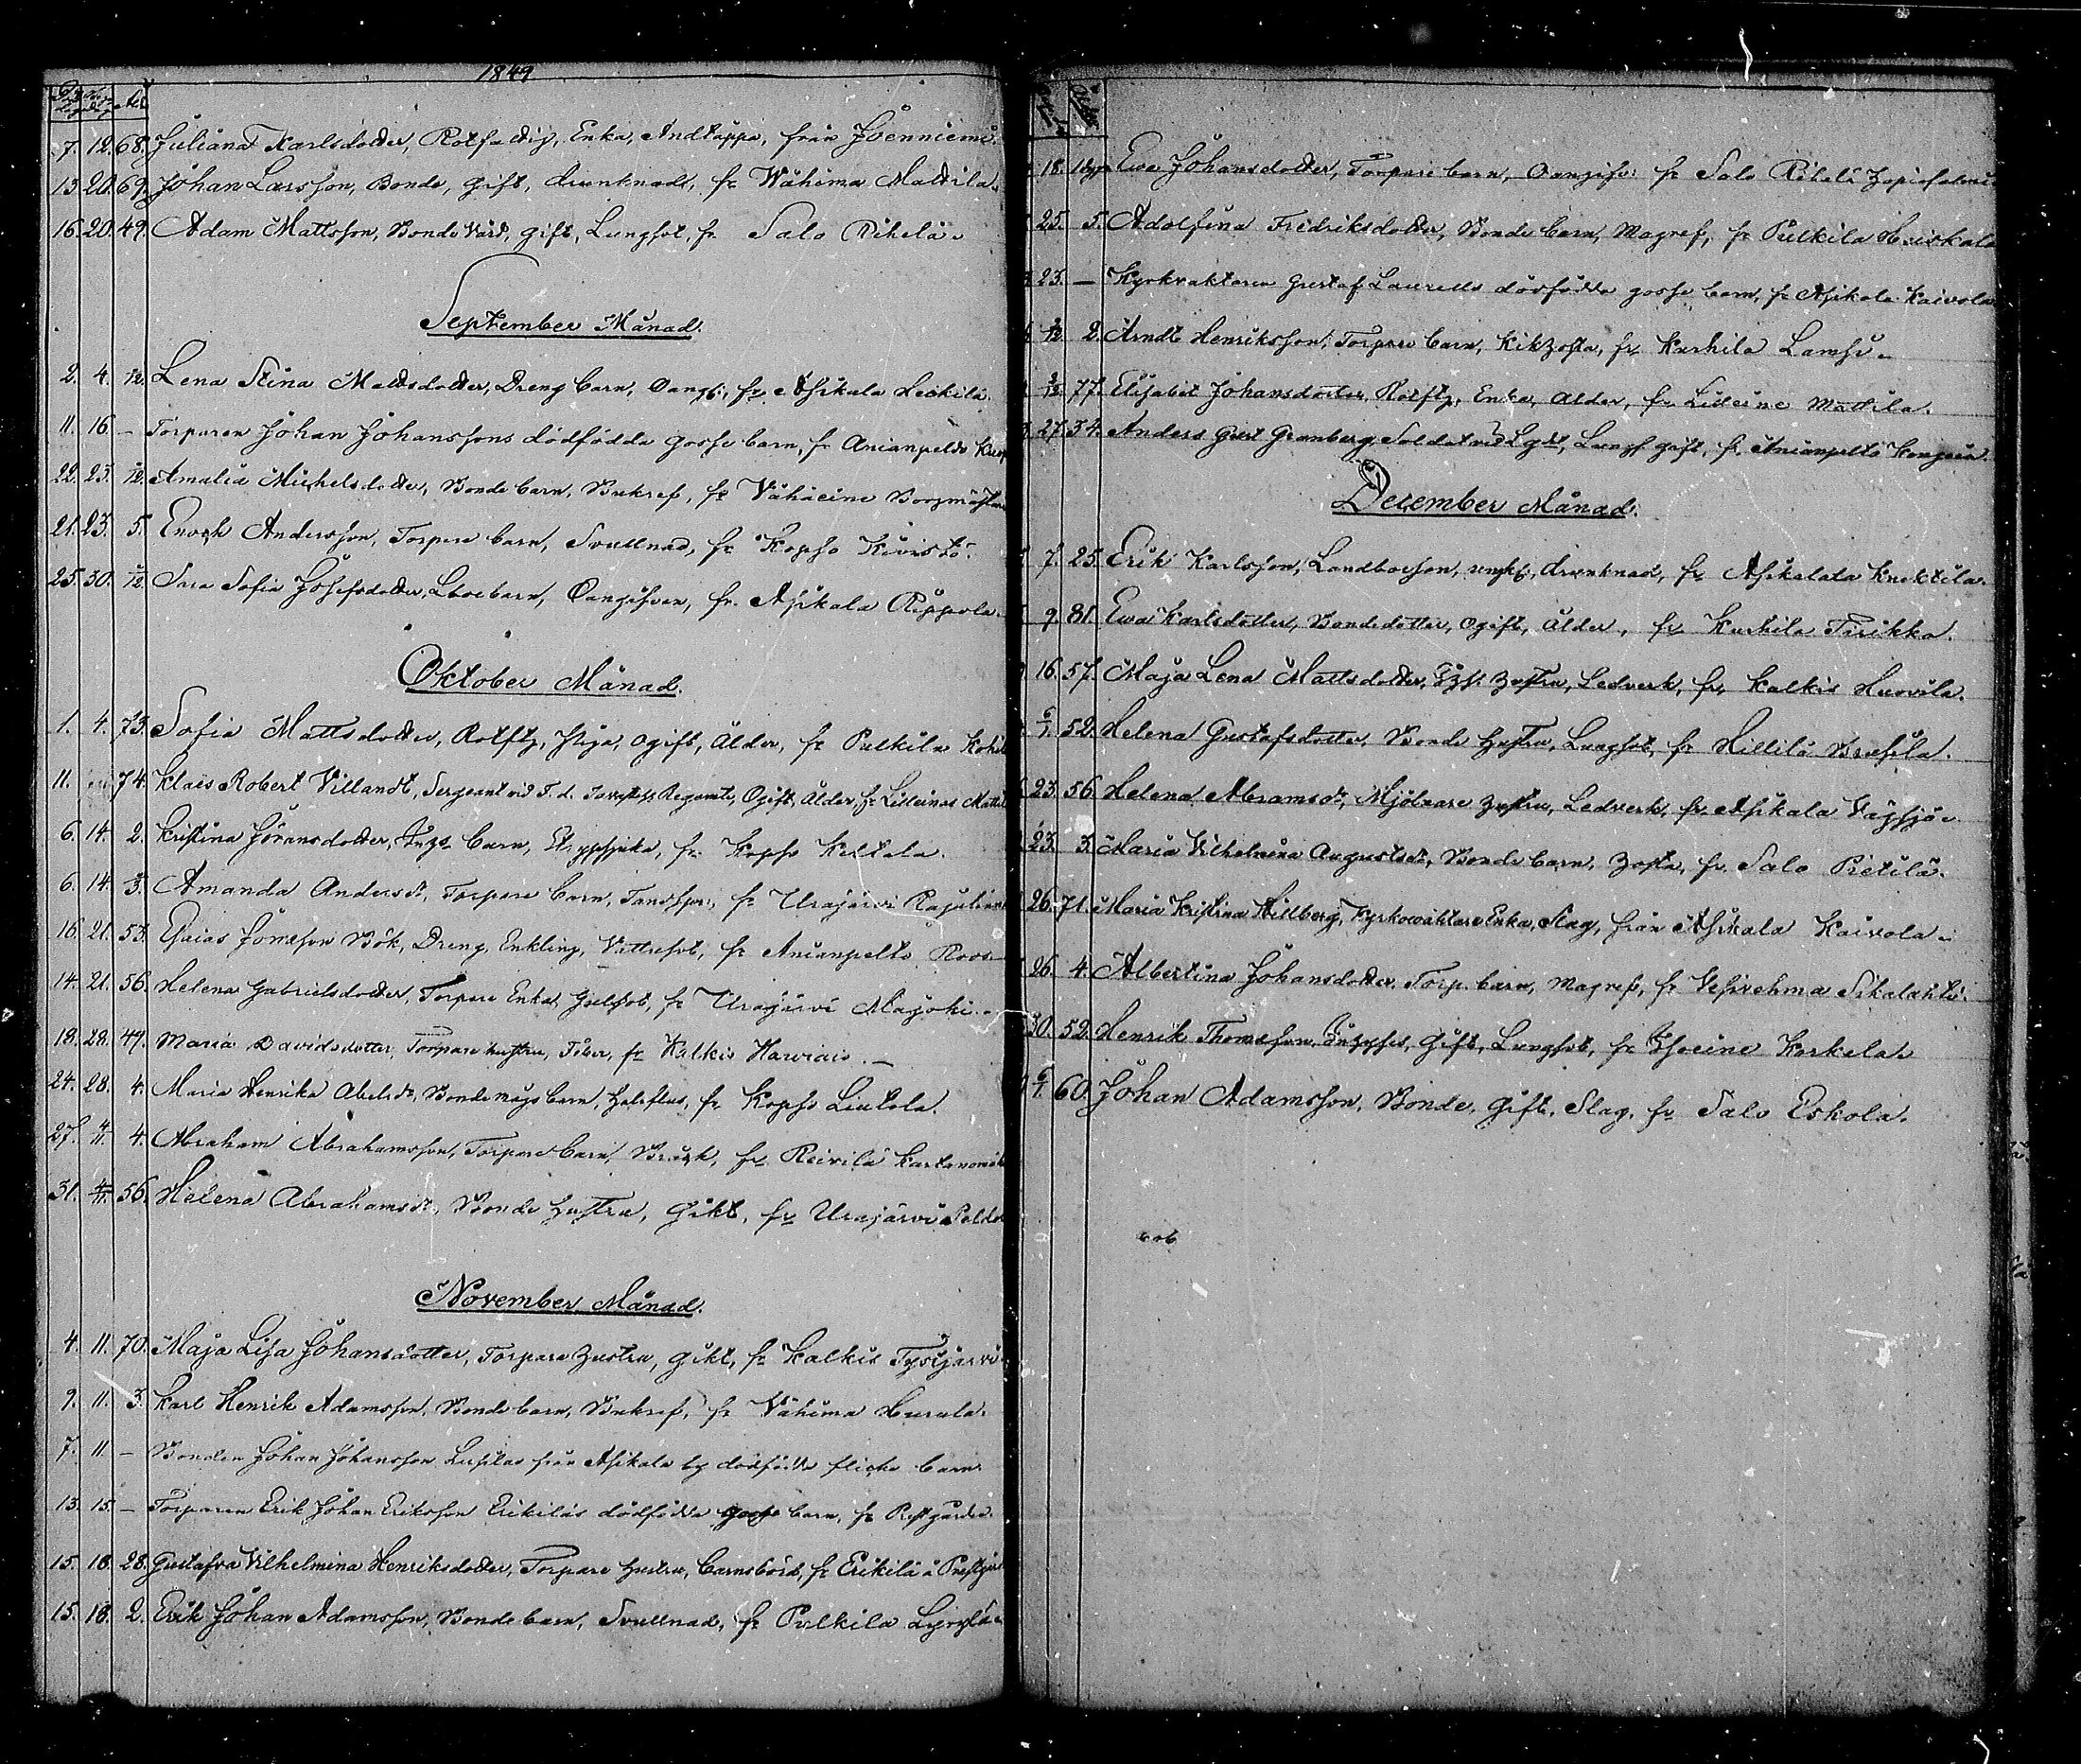 1849
7. 12. 68. Juliana Karlsdotter, Rotfattig, Enka, Andtäppa, från Joenniemi.
13 20. 69. Johan Larsson, Bonde, gift, drunknad, fr Wähimaa Mattila.
16. 20. 49. Adam Mattsson, Bonde Värd, gift, Lungsot, fr Salo Rihelä.
September Månad.
2. 4. Lena Stina Mattsdotter, Dreng barn, fr Asikala Leikilä
11. 16. – Torparen Johan Johanssons dödfödda gosse barn, fr Anianpelto
22. 23. Amalia Michelsdotter, Bonde barn, Bukref, fr Vähäeine
21. 23. 5. Enoch Andersson, Torpare barn, Svullnad, fr Kopso Kivistö.
25. 30. Sara Sofia Josefsdotter, barn, Oangifven, fr. Asikala Reppola.
Oktober Månad.
1. 4. 73. Sofia Mattsdotter, Rotftg, Piga, ogift, Ålder, fr Pulkila
11. 74. Klaes Robert Villandt, Sergeant vid F. d. Regemte, Ogift, Ålder, fr
6. 14. 2. Kristina Göransdotter, Inhs barn, Strypsjuka, fr Kopso Keltala.
6. 14. Amanda Andersdr, Torpare barn, fr Urajärvi
16. 21. 53. Esaias Bök, Dreng, Enkling, Vattusot, fr Anianpelto
14. 21. 56. Helena Gabrielsdotter, Torpare Enka, Gulsot, fr Urajärvi Majoki.
18. 28. 47. Maria Davidsdotter, Torpare hustru, Feber, fr Kalkis
24. 28. 4. Maria Henrika Abelsdr, Bondemågs barn, Halsflus, fr Kopso Liutola.
27. 4/11 4. Abraham Abrahamsson, Torpare barn, Bråck, fr Reivilä
31. 4/11 56. Helena Abrahamsdr, Bonde hustru, Gikt, fr Urajärvi
November Månad.
4. 11. 70. Maja Lisa Johansdotter, Torpare hustru, gikt, fr Kalkis
9. 11. 3. Karl Henrik Adamsson, Bonde barn, Bukref, fr Vähimaa
7. 11 – Bonden Johan Johansson från Asikala by dödfödda flicke barn
13. 15. – Torparen Erik Johan Eriksson Erikiläs dödfödda gosse barn, fr Prestgården
15. 18. 28. Gustafva Vilhelmina Henriksdotter, Torpare hustru, barnsbörd, fr Erikilä å
15. 18. 2. Erik Johan Adamsson, Bonde barn, Svullnad, fr Pulkila
18. Eva Johansdotter, Torpare barn, Oangifv: fr Salo
25. 5. Adolfina Fredriksdotter, Bonde barn, Magref, fr Pulkila Heiskala
23. – Kyrkvaktaren Gustaf dödfödda gosse barn, fr Asikala Kaivola
2. Arndt Henriksson, Torpare barn, Kikhosta, fr Kurhila
77. Elisabet Johansdotter, Rotftg, Enka, Ålder, fr Mattila.
27. 34. Anders Gust Granberg, Soldat vid Lungs: gift, fr Anianpelto
December Månad.
7. 25. Erik Karlsson, Landboeson, drunknad, fr Asikala
9. 81. Eva Karlsdotter, Bondedotter, ogift, Ålder, fr Kurhila Tirikka.
16. 57. Maja Lena Mattsdotter, hustru, Ledverk, fr Kalkis Huovila.
6/1 52. Helena Gustafsdotter, Bonde hustru, Lungsot, fr Hillilä
23. 56. Helena Abramsdr, Mjölnare hustru, Ledverk, fr Asikala Vägsjö.
23. 3. Maria Vilhelmina Augustsdr, Bonde barn, hosta, fr. Salo Pietilä.
26. 71. Maria Kristina Hillberg, Kyrkovaktare Enka, Slag, från Asikala Kaivola
26. 4. Albertina Johansdotter, Torp. barn, Magref, fr Vesivehmaa Sikalahti.
30. 52. Henrik Thomasson, Gift, Lungsot, fr Korkela.
6/1 60. Johan Adamsson, Bonde, Gift, Slag, fr Salo Eskola.